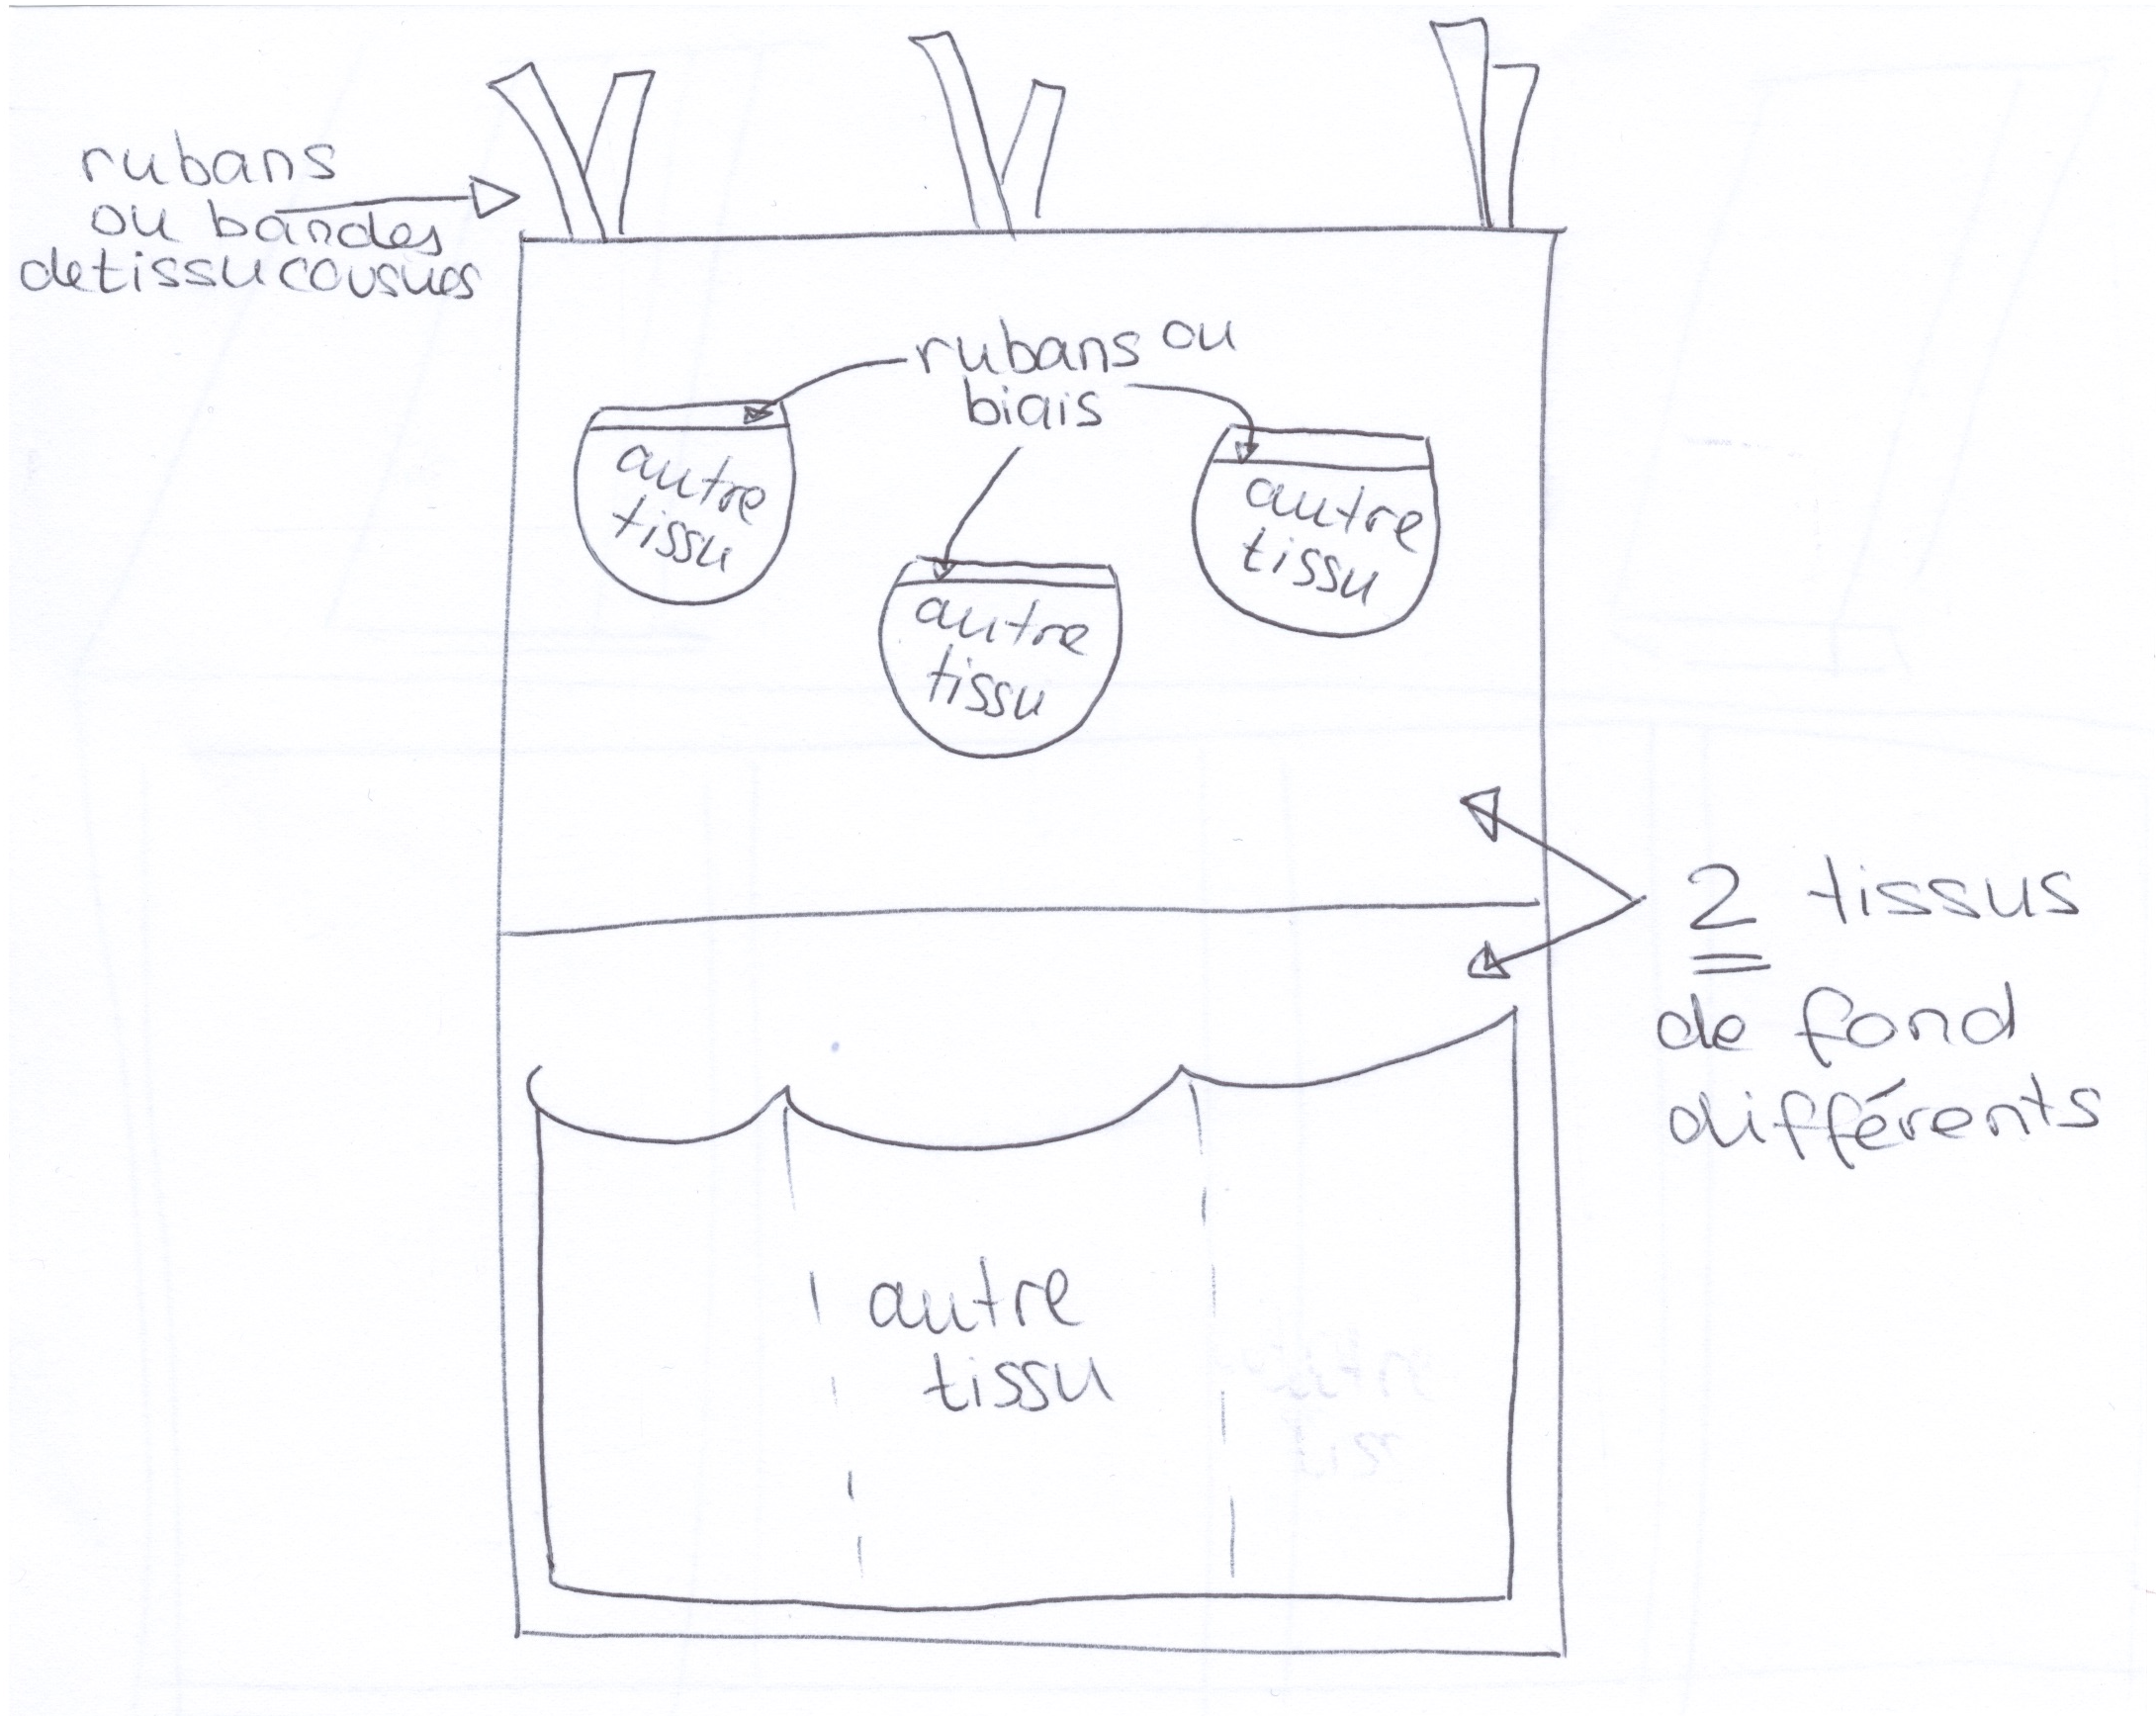 rubans
ou bandes
de tissu cousues
rubans ou
biais
autre
tissu
autre
tissu
autre
tissu
2 tissus
de fond
différents
autre
tissu